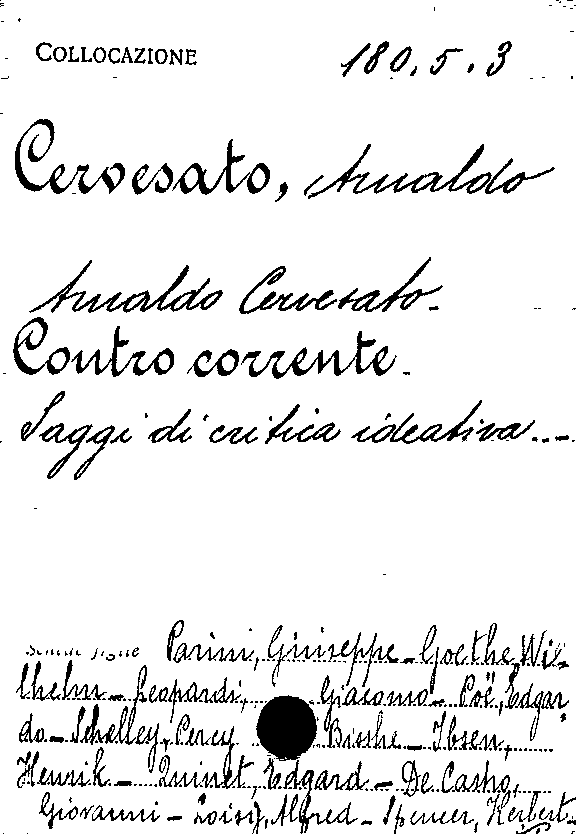 COLLOCAZIONE 180.5.3
Cervesato, Arnaldo
Arnaldo Cervesato.
Contro corrente.
Saggi di critica ideativa...
Parini, Giuseppe - Goethe, Wil-
lhelm - Leopardi, Giacomo - Poë, Edgar-
do - Schelley, Percy Bisshe - Ibsen,
Henrik - Quinet, Edgard - De Castro,
Giovanni - Loisy, Alfred - Spencer, Herbert -